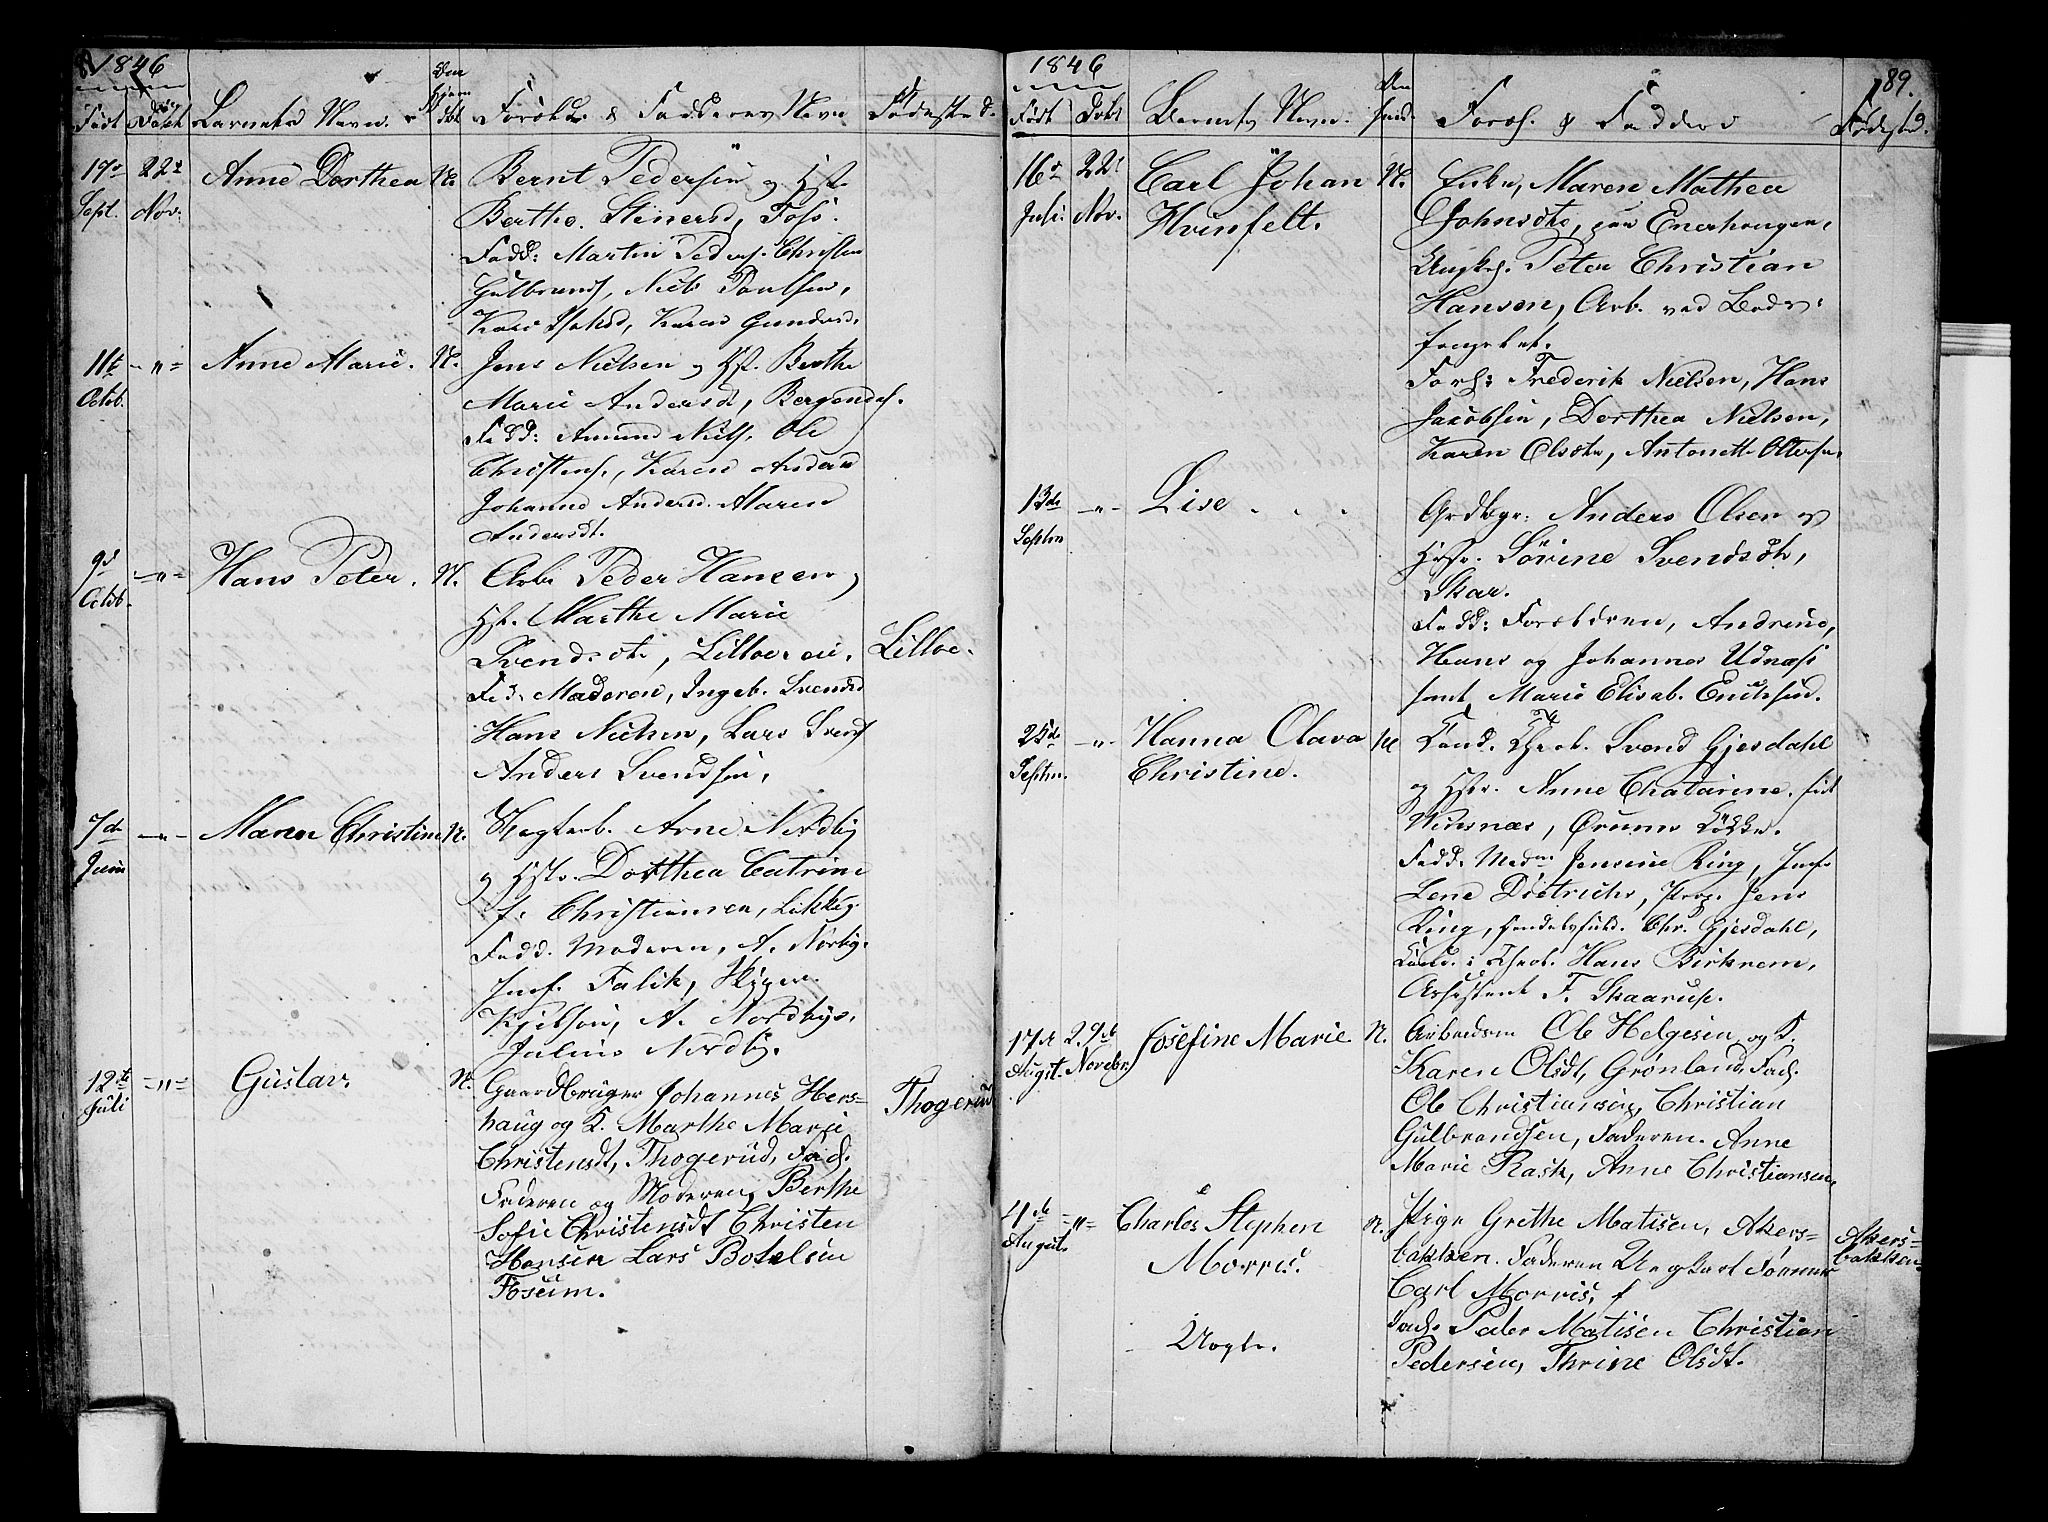 1846
Født
Barnets Navn
Forældre & Faddernes Navn
Fødested
17de
Sept.
22de
Nov:
Anne Dorthea
N.
Bernt Pedersen og Hst.
Berthe Stinersd, Foss.
Fadd: Martin Peders. Christen
Gulbrands, Niels Paulsen,
Kari Isaksd, Karen Gundersd.
11te
Octob.
- " -
Anne Marie.
N.
Jens Nielsen og Hst. Berthe
Marie Andersd,
Fadd: Amund Niels. Ole
Christens., Karen Anders
Johanne Andersd. Maren
Andersdt.
9de
Octob.
- " -
Hans Peter.
N.
Arb: Peder Hansen og
Hst. Marthe Marie
Svendsdt,
Lilloe.
Fad. Moderen, Ingeb. Svends
Hans Nielsen, Lars Svends
Anders Svendsen,
7de
Juni
- " -
Maren Christine
N.
Arne Nordby
og Hst. Dorthea Catrine
f. Christiansen, Løkkeg.
Fadd. Moderen, A. Norby,
Jmf. Falik,
Kjelsen, A. Nordbye,
Julius Nordby.
12te
Juli
- " -
Gustav.
N.
Gaardbruger Johannes Hers-
haug og K. Marthe Marie
Christensdt, Thogerud, Fad.
Faderen og Moderen, Berthe
Sofie Christensdt Christen
Hansen Lars Botelsen
Fosum.
Thogerud
1846
89.
Født
Døbt
Barnets Navn.
Foræl. & Faddere
Fødested.
16de
Juli.
22de
Nov.
Carl Johan
Hvinfelt.
N.
Enke, Maren Mathea
Johnsdtr, paa Enerhaugen,
Ungkrl. Peter Christian
Hansen, Arb. ved Bods-
fængslet.
Fredrik Nielsen, Hans
Jacobsen, Dorthea Nielsen,
Karen Olsdtr, Antonette Ottersen
13de
Septm
- " -
Lise
Grdbgr: Anders Olsen og
Hst. Sørine Svendsdtr,
Skar.
Fadd: Forældren, Andrine,
Hans og Johannes Udnæs
samt Marie Elisab. Erichsend.
25de
Septm.
- " -
Hanna Olava
Christine.
N
Cand. Theol. Svend Gjesdahl
og Hstr. Anne Chatarine, født
Winsnæs, Ørums Løkke.
Fadd. Madm Jensine Ring, Jmf.
Lene Dietrichs, Prop. Jens
Ring, Handelsfuld. Chr. Gjesdahl,
Cand. i Theol. Hans Birkrem,
Assistent F. Skaarup.
17de
Augst.
29de
Novebr
Josefine Marie
N.
Arbeidsm Ole Helgesen og K.
Karen Olsdt, Grønland, Fad.
Ole Christiansen, Christian
Gulbrandsen, Faderen. Anne
Marie Rask, Anne Christiansen,
4de
August
= " =
Charles Stephen
Morris.
Uægte.
N.
Pige Grethe Matisen, Akers-
bakken. Faderen Ungkarl Tømmer
Carl Morris,
Fad. Peder Matisen Christian
Pedersen, Thrine Olsdt.
Akers-
bakken